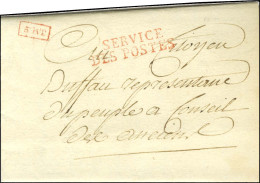 SERVICE
DES POSTES
Au Citoyen
Duffau representant
du peuple a Conseil
des anciens